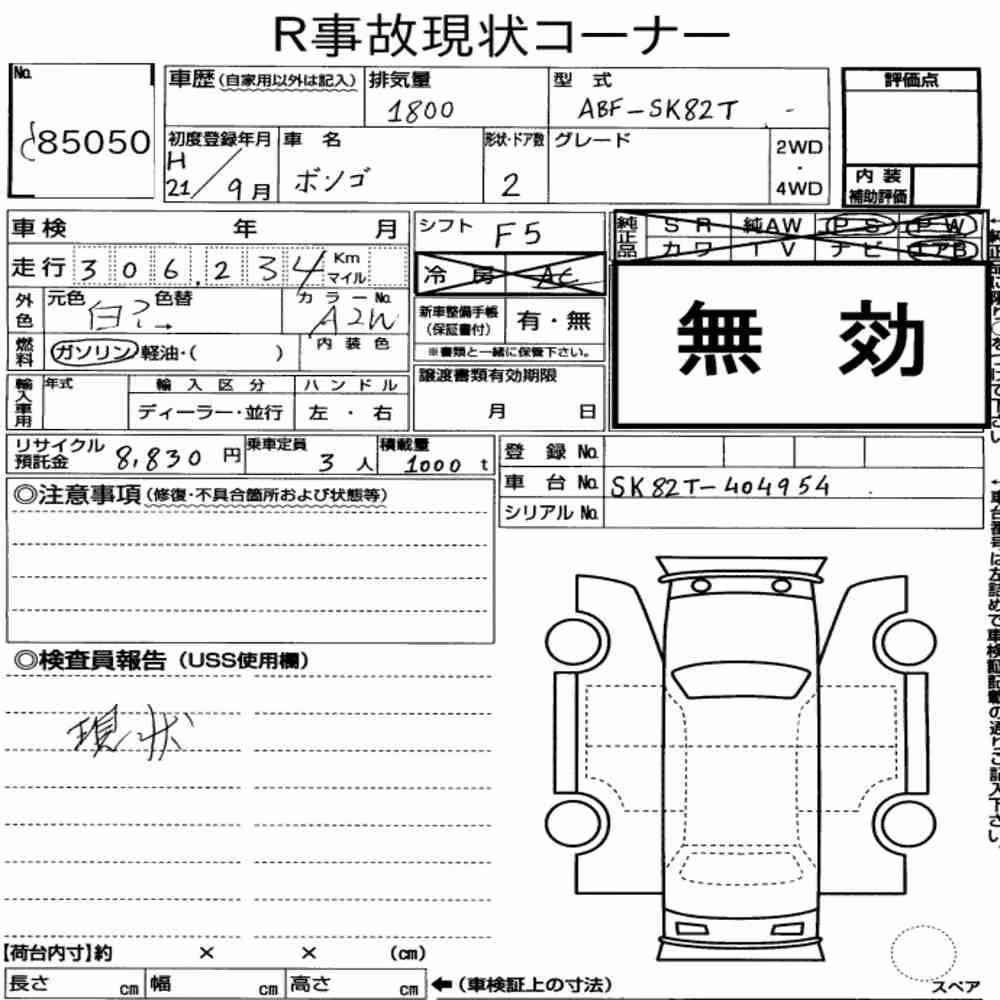 R事故現状コーナー
No.
85050
車歴(自家用以外は記入)
排気量
1800
型 式
ABF-SK82T -
評価点
初度登録年月
H
21/9月
車 名
ボンゴ
形状・ドア数
2
グレード
2WD
・
4WD
内 装
補助評価
車検 年 月
シフト F5
純正品
SR 純AW PS PW
カワ TV ナビ エアB
走行 306,234 Km
マイル
冷 房 AC
外色
元色 色替
白?→
カラーNo.
A2W
新車整備手帳
(保証書付)
有・無
無 効
燃料
ガソリン 軽油・( )
内装色
※書類と一緒に保管下さい。
輸入車用
年式
輸入区分
ハンドル
ディーラー・並行
左・右
譲渡書類有効期限
月 日
リサイクル
預託金 8,830 円
乗車定員
3 人
積載量
1000 t
登 録 No.
車 台 No. SK82T-404954
シリアル No.
◎注意事項(修復・不具合箇所および状態等)
←車台番号は左詰めで車検証記載の通りご記入下さい。
◎検査員報告(USS使用欄)
現状
【荷台内寸】約 × × (cm)
長さ cm 幅 cm 高さ cm ←(車検証上の寸法)
スペア